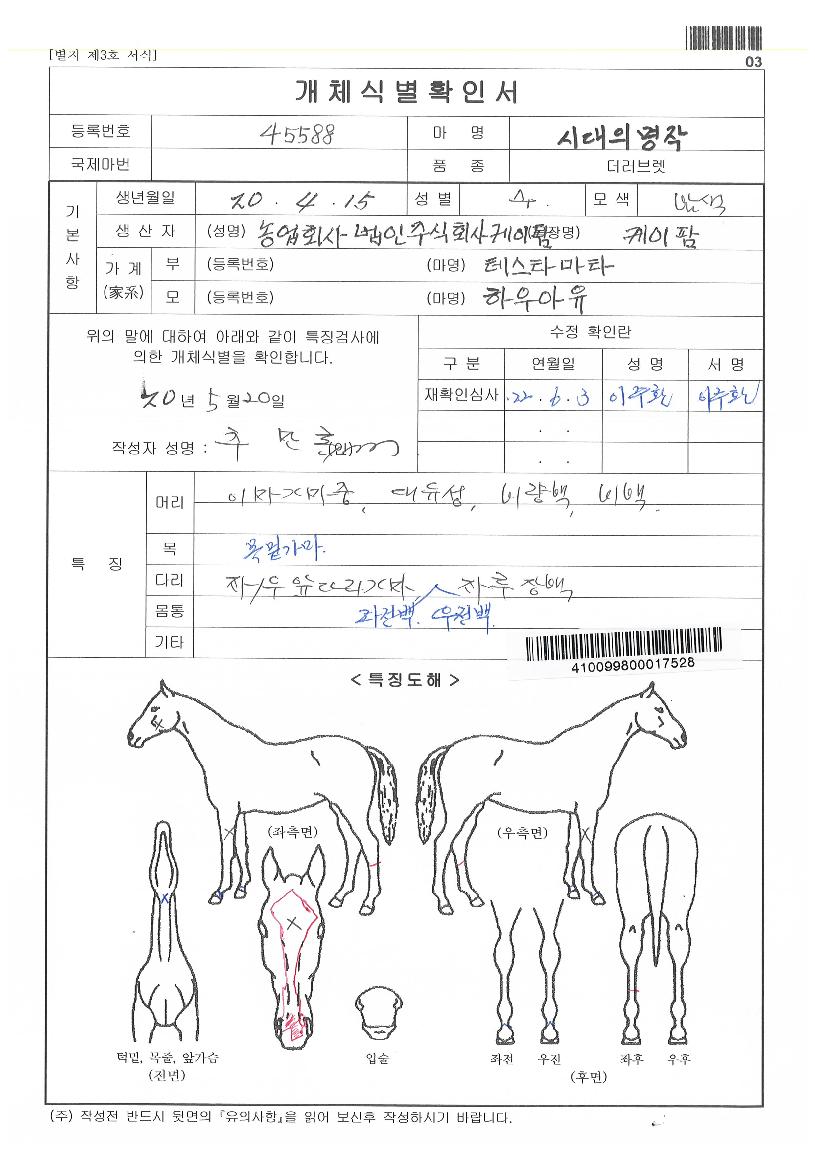 [별지 제3호 서식]
03
개체식별확인서
등록번호 45588 마 명 시대의명작
국제마번 품 종 더러브렛
기본사항
생년월일 20 . 4 . 15 성 별 모 색 밤색
생 산 자 (성명) 농업회사법인주식회사케이팜 케이팜
가 계 (家系) 부 (등록번호) (마명) 테스타마타
모 (등록번호) (마명) 하우아유
위의 말에 대하여 아래와 같이 특징검사에
의한 개체식별을 확인합니다.
20년 5월20일
작성자 성명 :
수정 확인란
구 분 연월일 성 명 서 명
재확인심사 22 . 6 . 3 이주환 이주환
. .
. .
특 징
머리 대유성, 비량백, 비백.
목 목밑가마.
다리 좌/우 앞다리가마 장백,
몸통 좌전백. 우전백.
기타
410099800017528
< 특징도해 >
(좌측면) (우측면)
턱밑, 목줄, 앞가슴
(전면)
입술
좌전 우진 좌후 우후
(후면)
(주) 작성전 반드시 뒷면의 『유의사항』을 읽어 보신후 작성하시기 바랍니다.